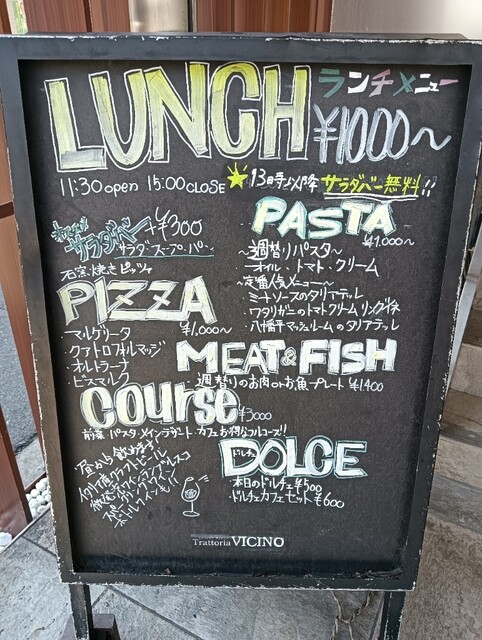 LUNCH ランチメニュー
¥1000〜
11:30 open 15:00 CLOSE ★13時以降 サラダバー無料!!
サラダバー +¥300
サラダ・スープ・パン
PASTA
¥1,000〜
〜週替りパスタ〜
・オイル、トマト、クリーム
〜定番人気メニュー〜
・ミートソースのタリアテッレ
・ワタリガニのトマトクリームリングイネ
・八幡平マッシュルームのタリアテッレ
石窯焼きピッツァ
PIZZA
¥1,000〜
・マルゲリータ
・クアトロフォルマッジ
・オルトラーナ
・ビスマルク
MEAT & FISH
・週替りのお肉orお魚プレート ¥1400
course ¥3000
前菜 パスタ メイン デザート カフェ お得なフルコース!!
昼から飲めます!
イタリア産クラフトビール
DOLCE
ドルチェ
本日のドルチェ ¥500
ドルチェカフェセット ¥600
Trattoria VICINO